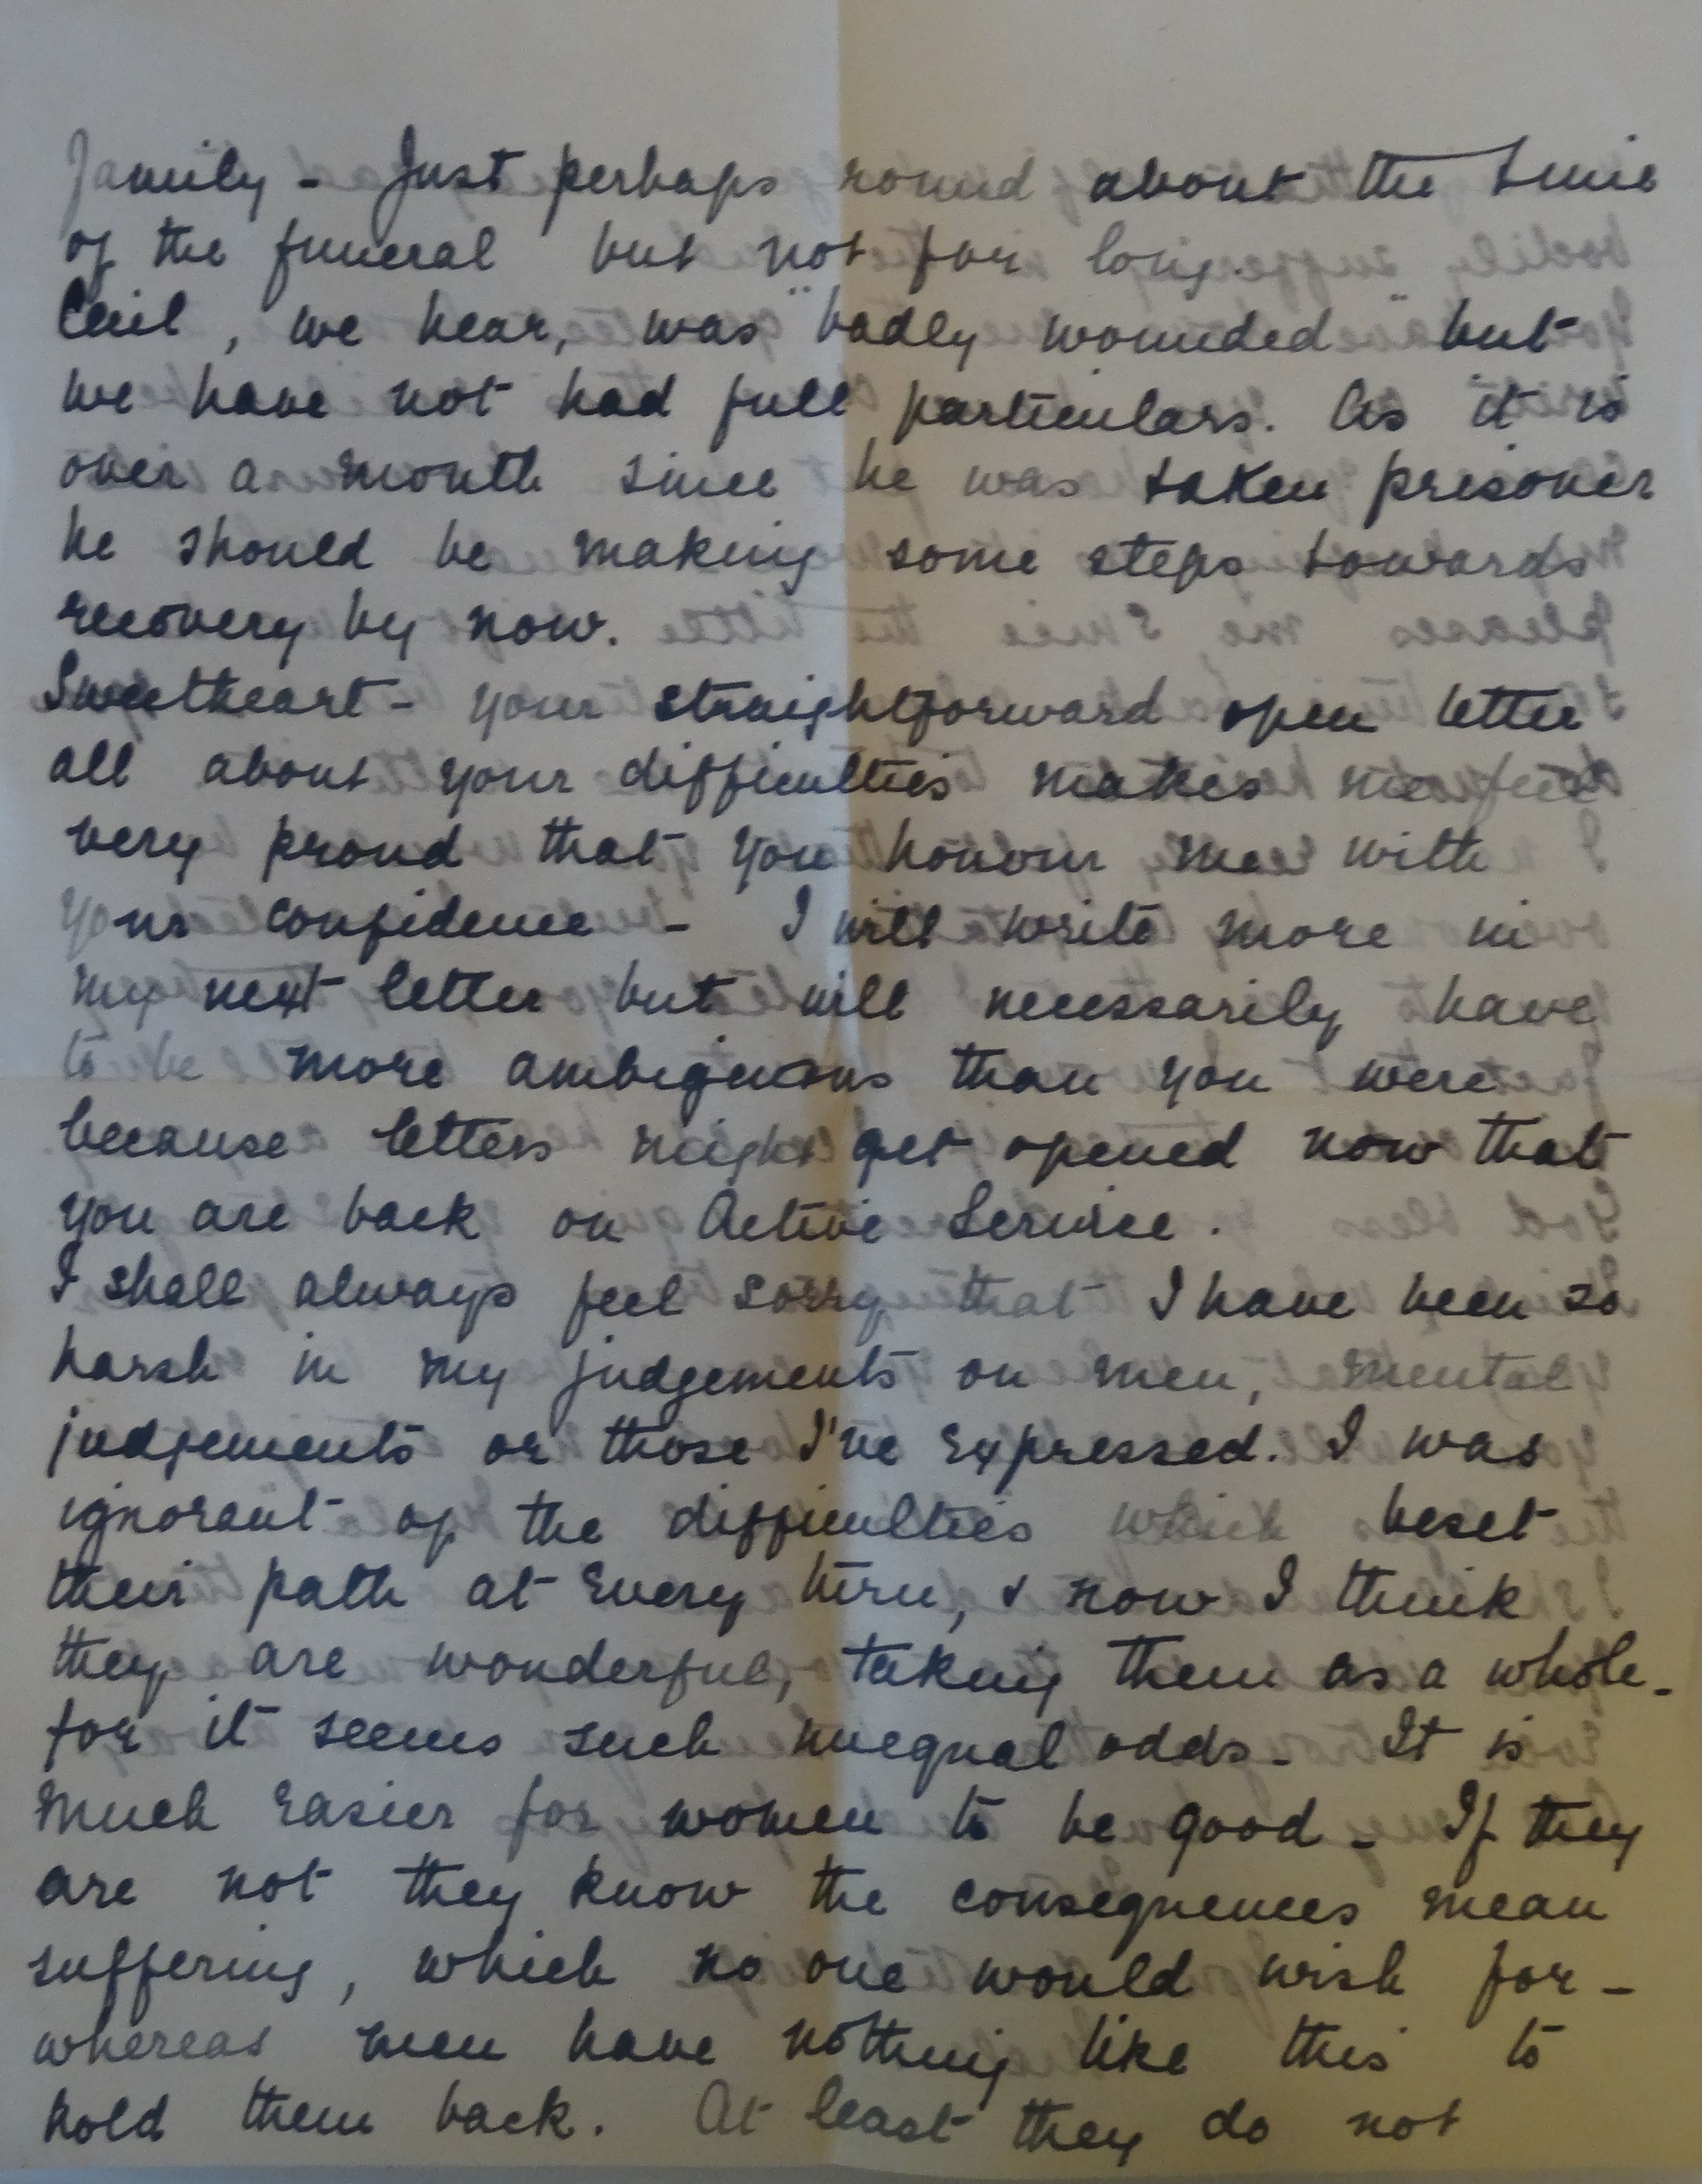 family - Just perhaps round about the time
of the funeral but not for long.
Cecil, we hear, was "badly wounded" but
we have not had full particulars. As it is
over a month since he was taken prisoner
he should be making some steps towards
recovery by now.
Sweetheart - your straightforward open letter
all about your difficulties makes me feel
very proud that you honour me with
your confidence - I will write more in
my next letter but will necessarily have
to be more ambiguous than you were
because letters might get opened now that
you are back on Active Service.
I shall always feel sorry that I have been so
harsh in my judgements on men, mental
judgements or those I've expressed. I was
ignorant of the difficulties which beset
their path at every turn, & now I think
they are wonderful, taking them as a whole -
for it seems such unequal odds - It is
much easier for women to be good - If they
are not they know the consequences mean
suffering, which no one would wish for -
whereas men have nothing like this to
hold them back. At least they do not